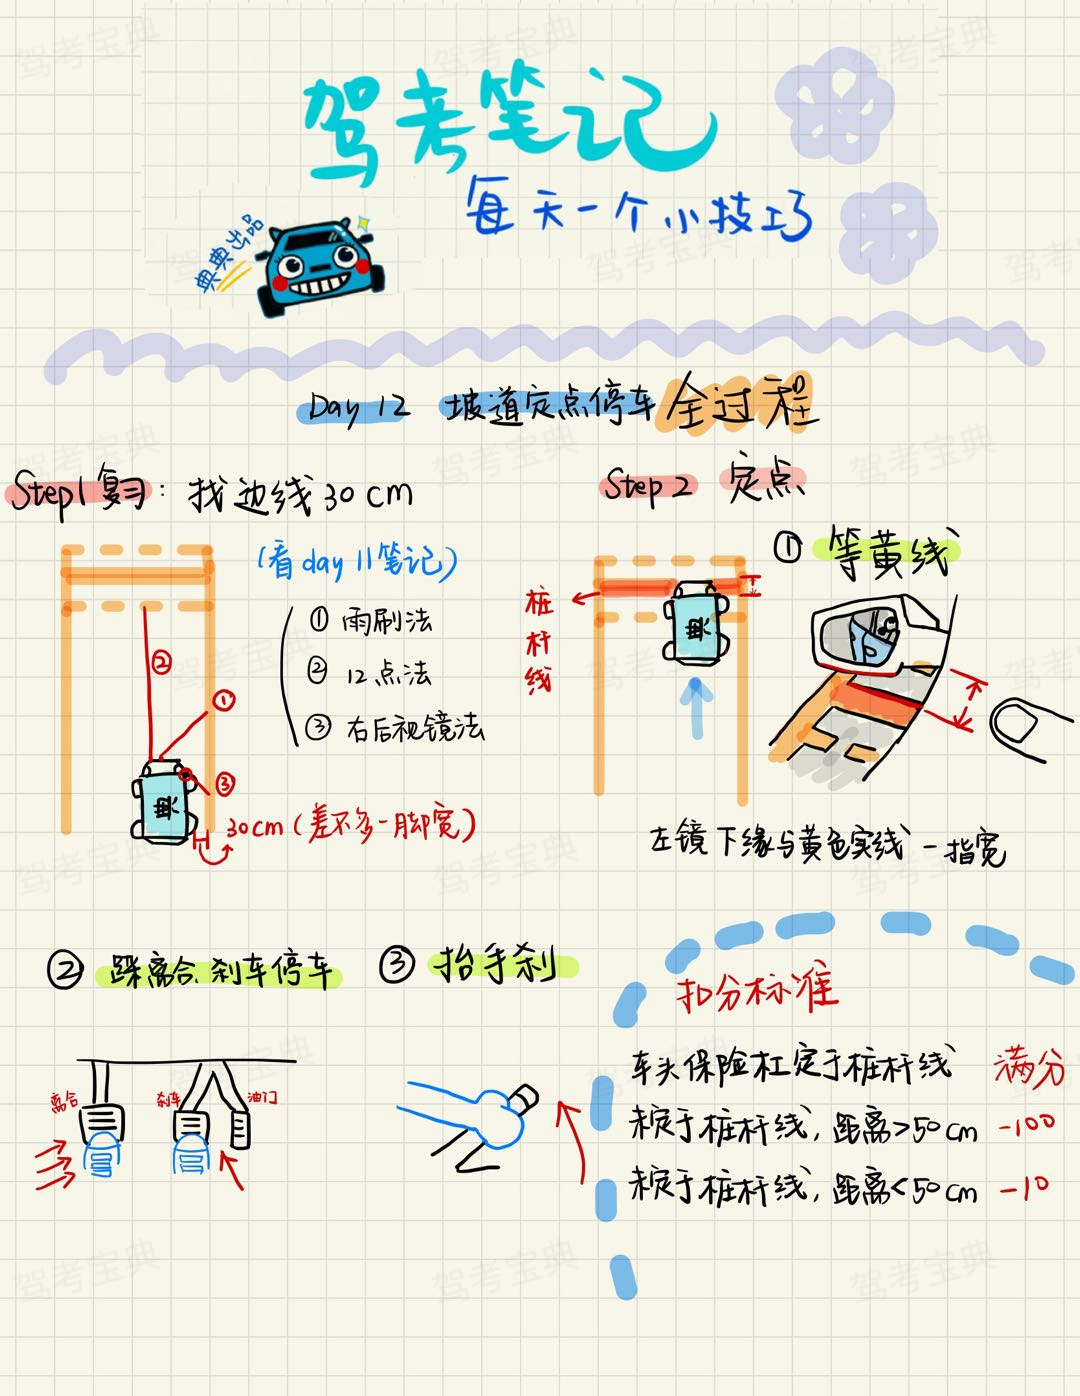 驾考笔记
每天一个小技巧
典典出品
Day 12 坡道定点停车全过程
Step1 复习：找边线30cm
(看day 11笔记)
① 雨刷法
② 12点法
③ 右后视镜法
②
①
③
典
30cm (差不多一脚宽)
Step 2 定点
① 等黄线
桩杆线
典
左镜下缘与黄色实线一指宽
② 踩离合、刹车停车
离合
刹车
油门
③ 抬手刹
扣分标准
车头保险杠定于桩杆线 满分
未定于桩杆线, 距离>50cm -100
未定于桩杆线, 距离<50cm -10
驾考宝典